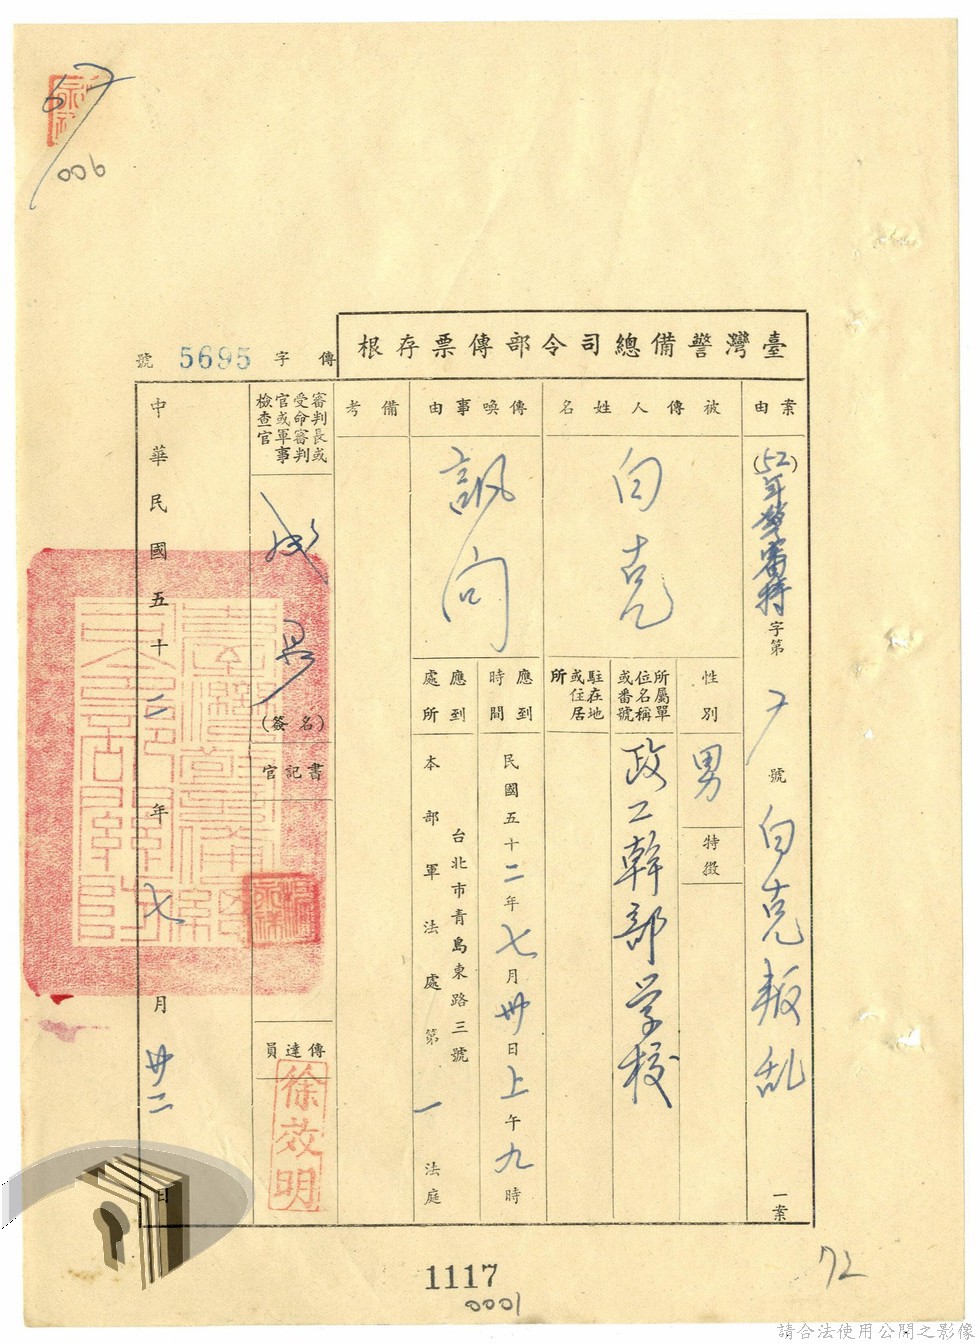 006
臺灣警備總司令部傳票存根
傳字 5695 號
案由
(52)年警審特字第
號
白克叛乱
一案
被傳人姓名
白克
性別
男
特徵
所屬單位名稱或番號
政工幹部学校
駐在地或住居所
傳喚事由
訊问
應到時間
民國五十二年七月卅日上午九時
應到處所
台北市青島東路三號
本部軍法處第一法庭
備考
審判長或受命審判官或軍事檢查官
(簽名)
書記官
傳達員
徐效明
中華民國五十二年七月廿二日
1117
0001
72
請合法使用公開之影像